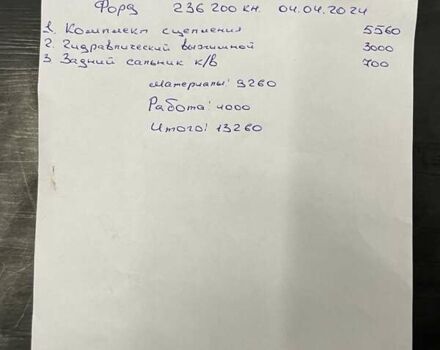 Форд 236 200 км. 04.04.2024
1. Комплект сцепления 5560
2. Гидравлический выжимной 3000
3 Задний сальник к/в 700
материалы: 9260
Работа: 4000
Итого: 13260